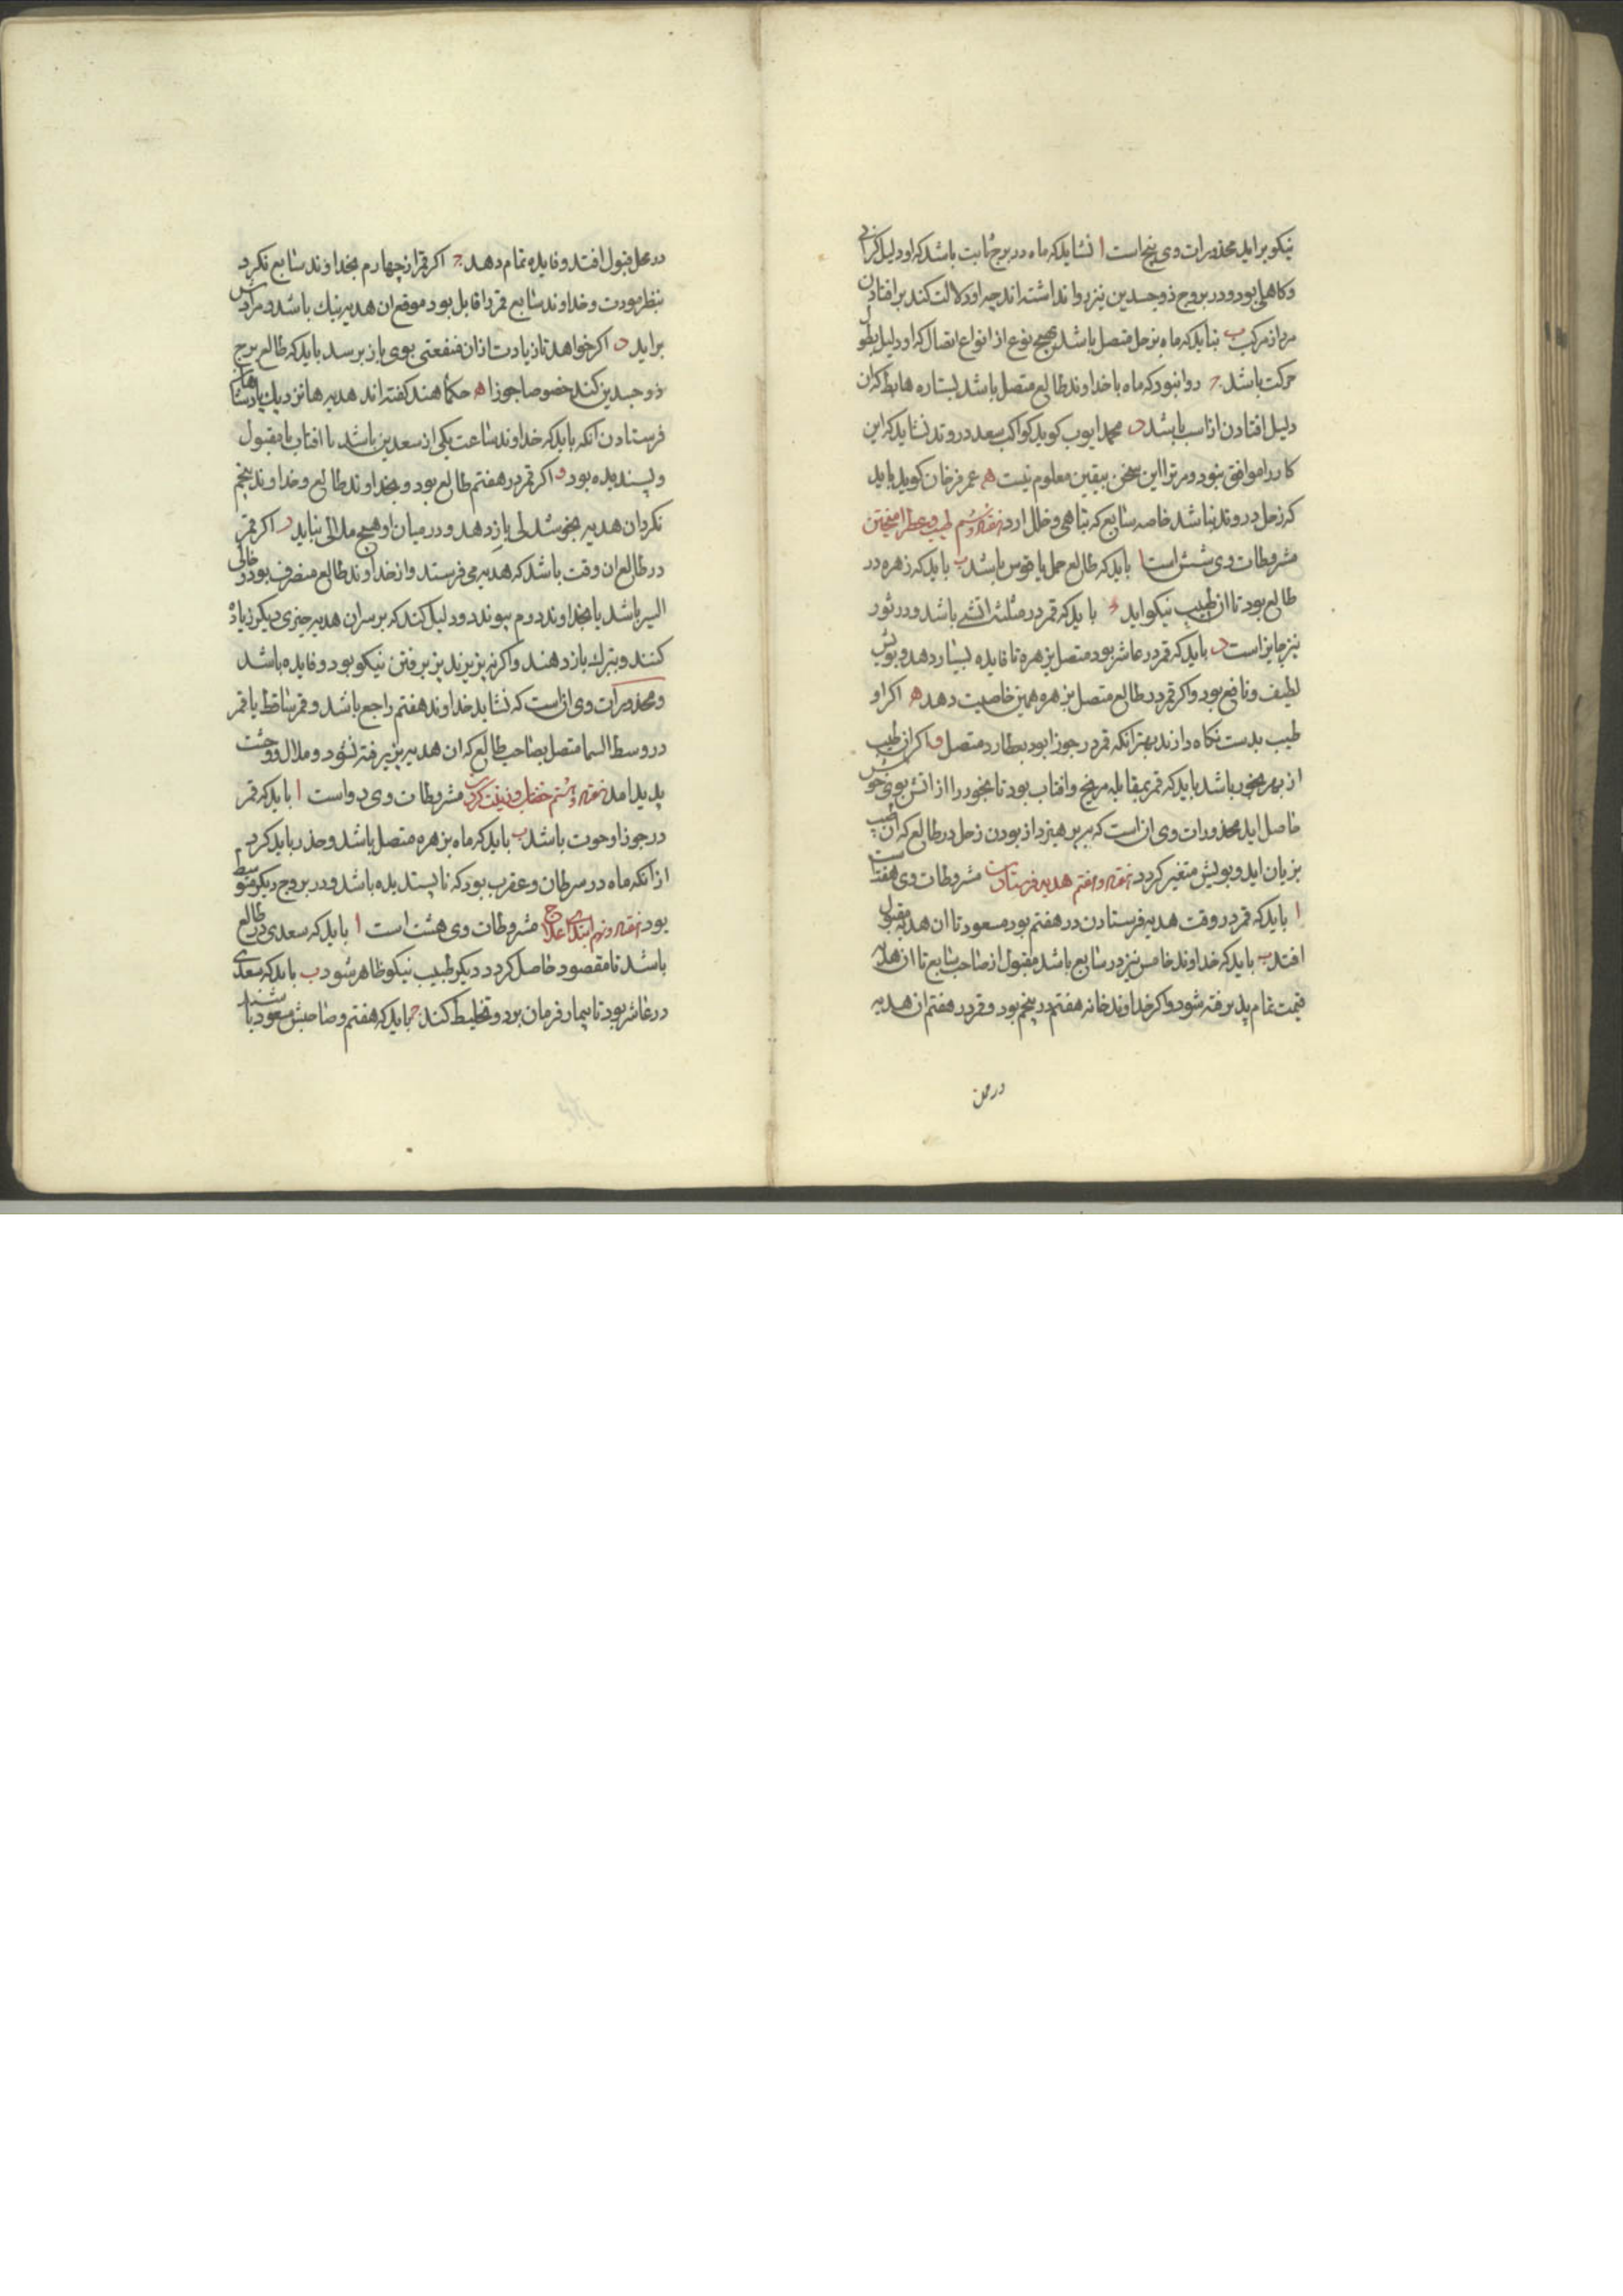 نیکو براید محذورات وی پنج است ا نشاید که ماه در برج ثابت باشد که او دلیل کرانی
و کاهلی بود و در بروج ذوجسدین نیز روا نداشته اند چه او دلالت کند بر افتادن
مرد از مرکب ب نباید که ماه بزحل متصل باشد بهیچ نوع از انواع اتصال که او دلیل بطو
حرکت باشد ج روا نبود که ماه با خداوند طالع متصل باشد بستاره هابط که ان
دلیل افتادن از اسب باشد د محمد ایوب کوید کواکب سعد در وتد نشاید که این
کار را موافق نبود و مر ترا این سخن بیقین معلوم نیست ه عمر فرخان کوید باید
که زحل در وتد نباشد خاصه سابع که تباهی و خلل ارد طیب و عطر امیختن
مشروطات وی شش است ا باید که طالع حمل یا قوس باشد ب باید که زهره در
طالع بود تا ان طیب نیکو اید ج باید که قمر در مثلثه اتشی باشد و در ثور
نیز جایز است د باید که قمر در عاشر بود متصل بزهره تا فایده بسیار دهد و بویش
لطیف و نافع بود و اکر قمر در طالع متصل بزهره همین خاصیت دهد ه اکر او
طیب بدست نکاه دارند بهتر انکه قمر در جوزا بود بعطارد متصل و اکر ان طیب
از بهر بخور باشد باید که قمر بمقابله مریخ و افتاب بود تا بخور را از اتش بوی خوش
حاصل اید محذورات وی ان است که بپرهیزد از بودن زحل در طالع که ان طیب
بزیان اید و بویش متغیر کردد هفتم هدیه فرستادن مشروطات وی هفت است
ا باید که قمر در وقت هدیه فرستادن در هفتم بود مسعود تا ان هدیه مقبول
افتد ب باید که خداوند خامس نیز در سابع باشد مقبول از صاحب سابع تا ان هدیه
قیمت تمام پذیرفته شود و اکر خداوند خانه هفتم در پنجم بود و قمر در هفتم ان هدیه
در محل
در محل قبول افتد و فایده تمام دهد ج اکر قمر از چهارم بخداوند سابع نکرد
بنظر مودت و خداوند سابع قمر را قابل بود موضع ان هدیه نیک باشد و مرادش
براید د اکر خواهد تا زیادت ازان منفعتی بوی باز برسد باید که طالع برج
ذوجسدین کند خصوصا جوزا ه حکما هند کفته اند هدیه ها نزدیک پادشاهان
فرستادن انکه باید که خداوند ساعت یکی از سعدین باشد یا افتاب تا مقبول
و پسندیده بود و اکر قمر در هفتم طالع بود و بخداوند طالع و خداوند پنجم
نکرد ان هدیه بخوشدلی باز دهد و در میان او هیچ ملالی نیاید ز اکر قمر
در طالع ان وقت باشد که هدیه می فرستند و از خداوند طالع منصرف بود و خالی
السیر باشد یا بخداوند دوم پیوندد دلیل کند که بر سر ان هدیه چیزی دیکر زیاده
کنند و بترک باز دهند و اکر نپزیرند پزیرفتن نیکو بود و فایده باشد
و محذورات وی ان است که نشاید خداوند هفتم راجع باشد و قمر ساقط یا قمر
در وسط السما متصل بصاحب طالع که ان هدیه پزیرفته نشود و ملال و وحشت
پدید امد هشتم خضاب و زینت کردن مشروطات وی دو است ا باید که قمر
در جوزا و حوت باشد ب باید که ماه بزهره متصل باشد و حذر باید کرد
از انکه ماه در سرطان و عقرب بود که ناپسندیده باشد و در بروج دیکر متوسط
بود نهم ابتدای علاج مشروطات وی هشت است ا باید که سعدی در طالع
باشد تا مقصود حاصل کردد دیکر طبیب نیکو ظاهر شود ب باید که سعدی
در عاشر بود تا بیمار فرمان برد و تخلیط نکند ج باید که هفتم و صاحبش مسعود باشند